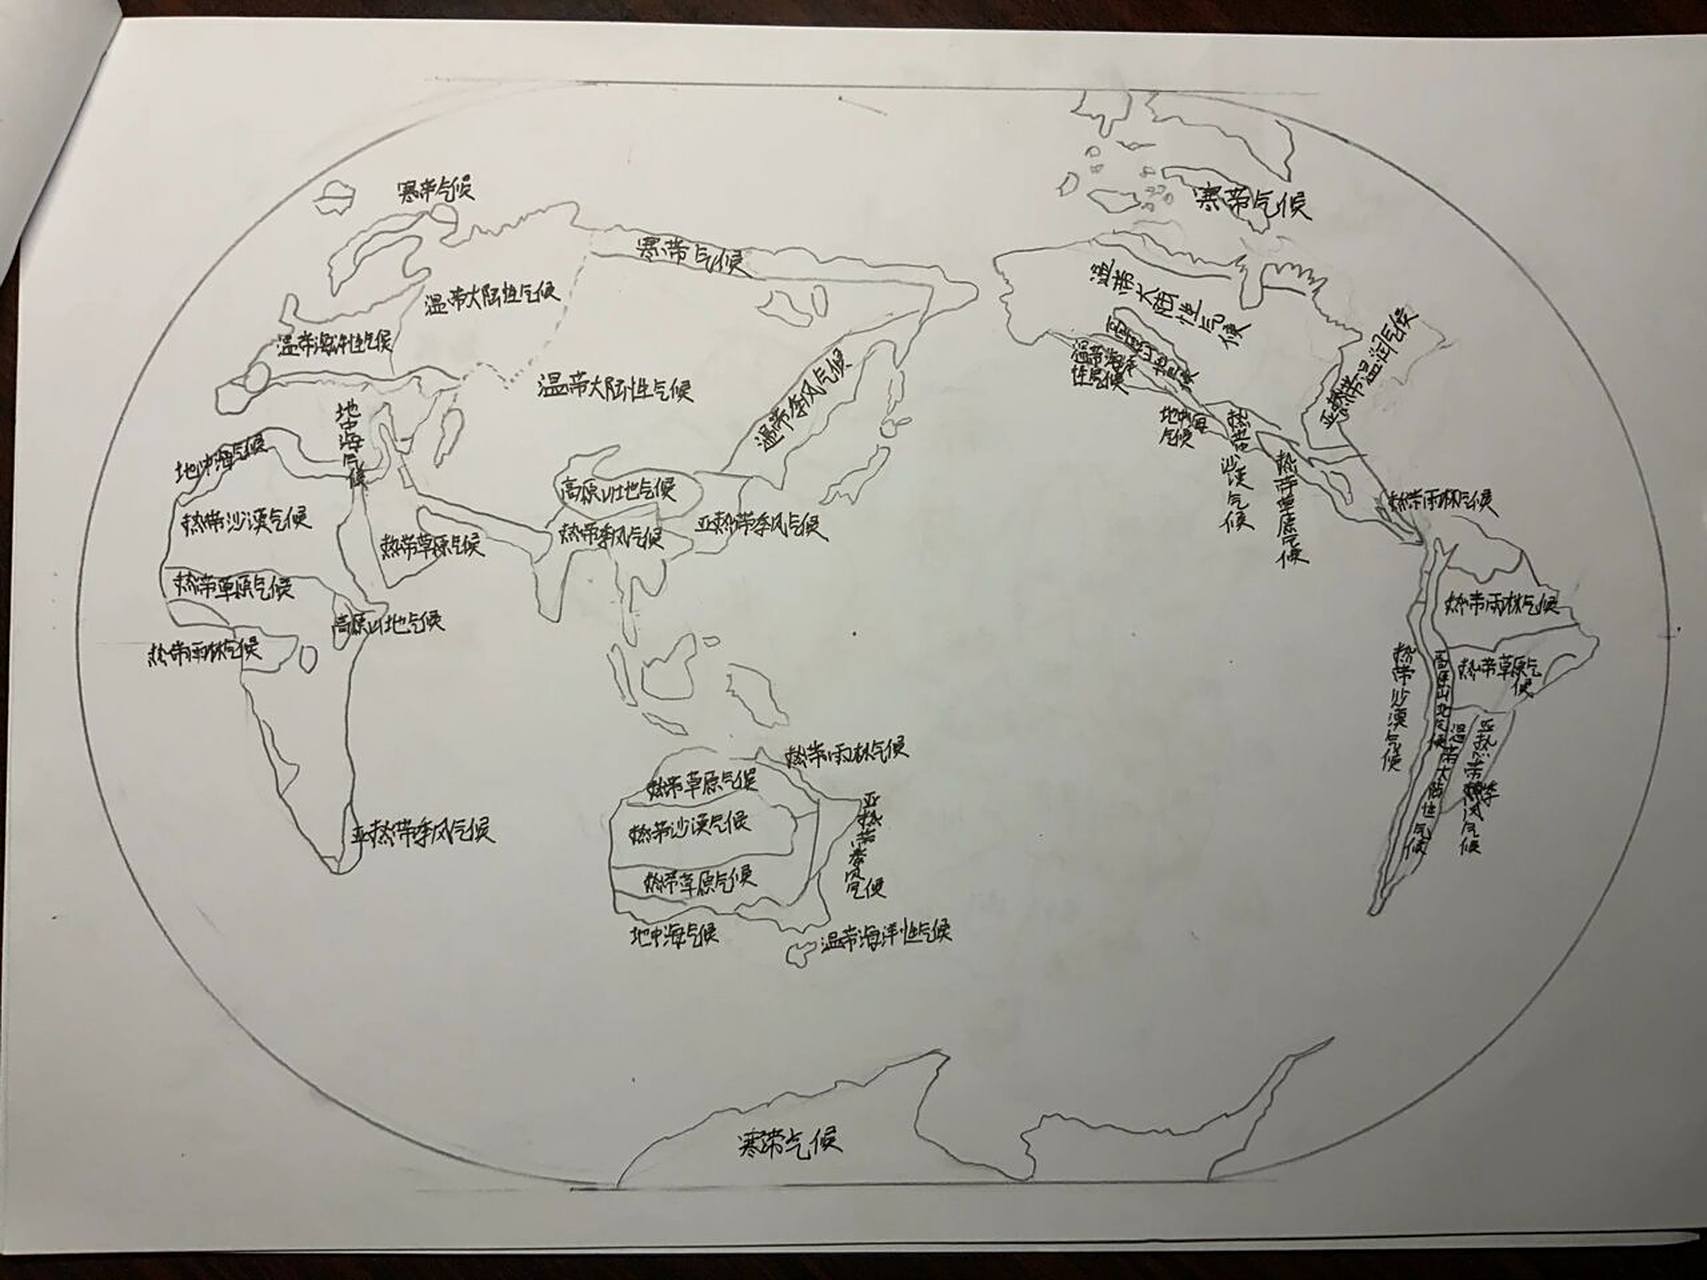 寒带气候
寒带气候
寒带气候
温带大陆性气候
温带大陆性气候
温带海洋性气候
高原山地气候
温带海洋性气候
亚热带湿润气候
温带大陆性气候
温带季风气候
地中海气候
地中海气候
地中海气候
热带沙漠气候
热带草原气候
高原山地气候
热带雨林气候
热带沙漠气候
亚热带季风气候
热带季风气候
热带草原气候
热带草原气候
热带雨林气候
高原山地气候
热带雨林气候
热带草原气候
热带沙漠气候
高原山地气候
温带大陆性气候
亚热带季风气候
热带雨林气候
热带草原气候
热带沙漠气候
亚热带季风气候
亚热带季风气候
热带草原气候
地中海气候
温带海洋性气候
寒带气候